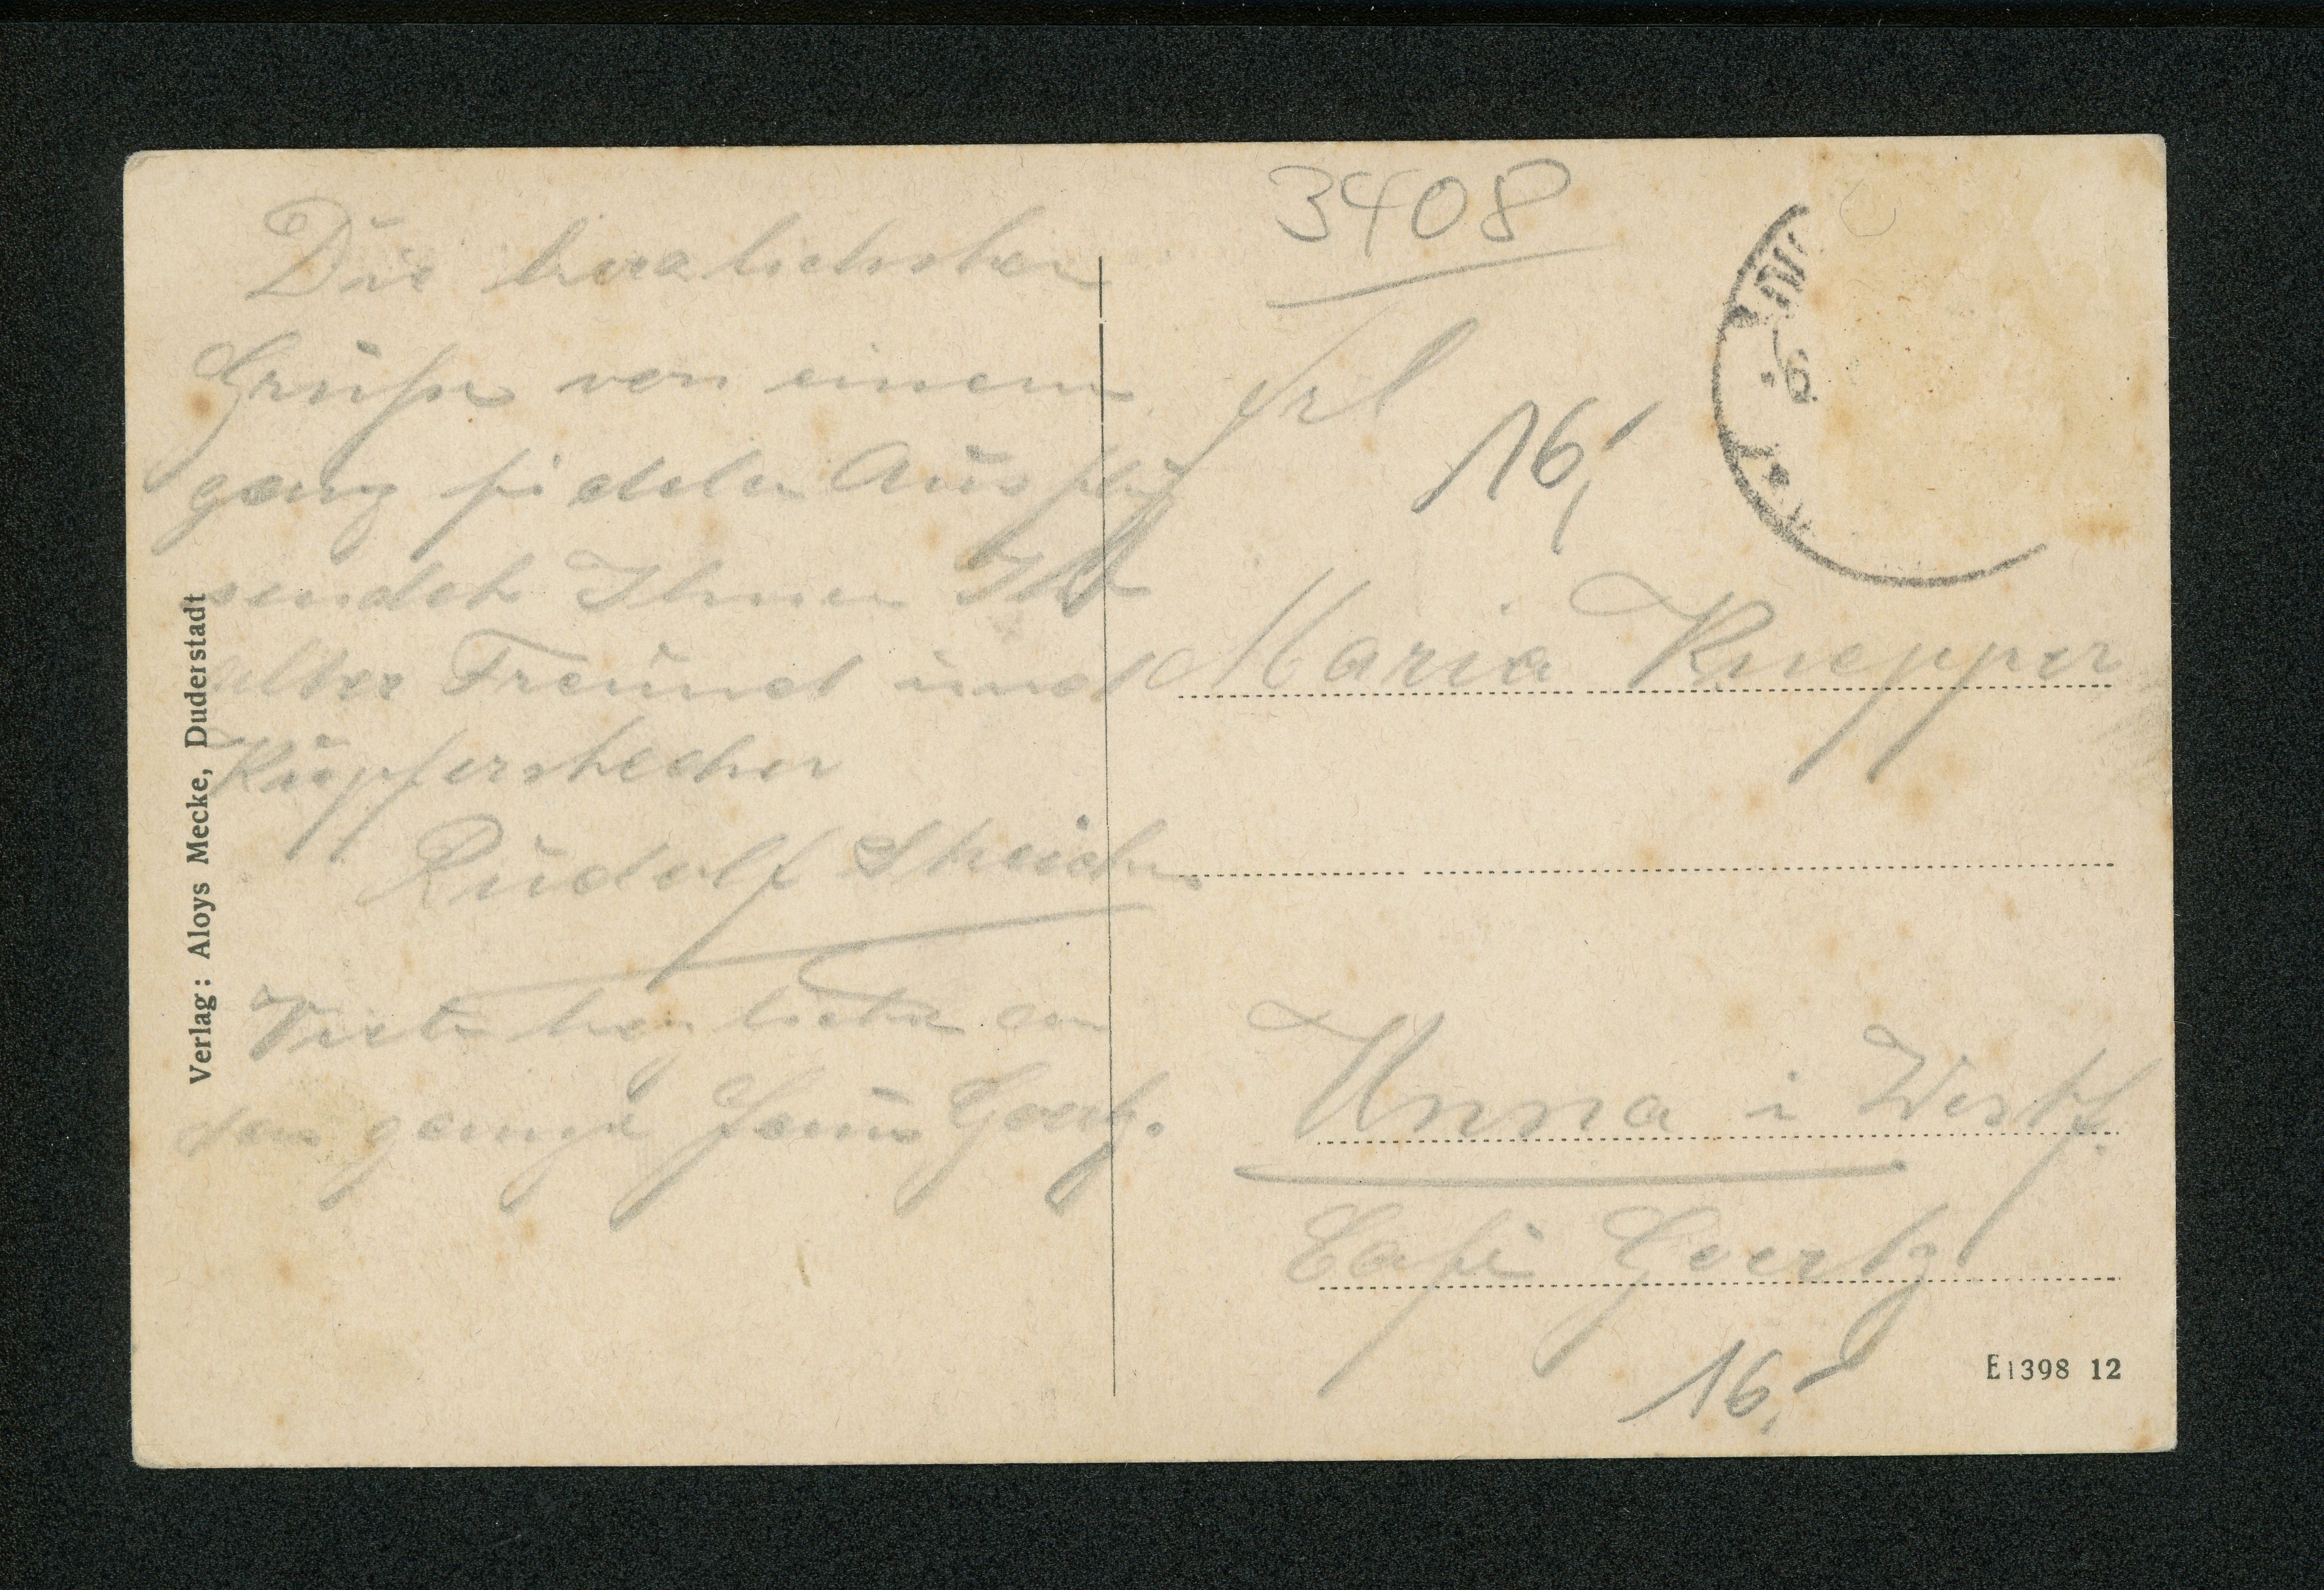 Die herzlichsten
Grüße von einem
ganz fidelen Ausflug
sendet Ihnen Ihr
alter Freund und
Kupferstecher
Rudolf
Viele herzliche an
das ganze Haus Goertz.
Verlag: Aloys Mecke, Duderstadt
3408
Frl
16,-
Maria Knepper
Unna i Westf.
Café Goertz
16,-
E1398 12